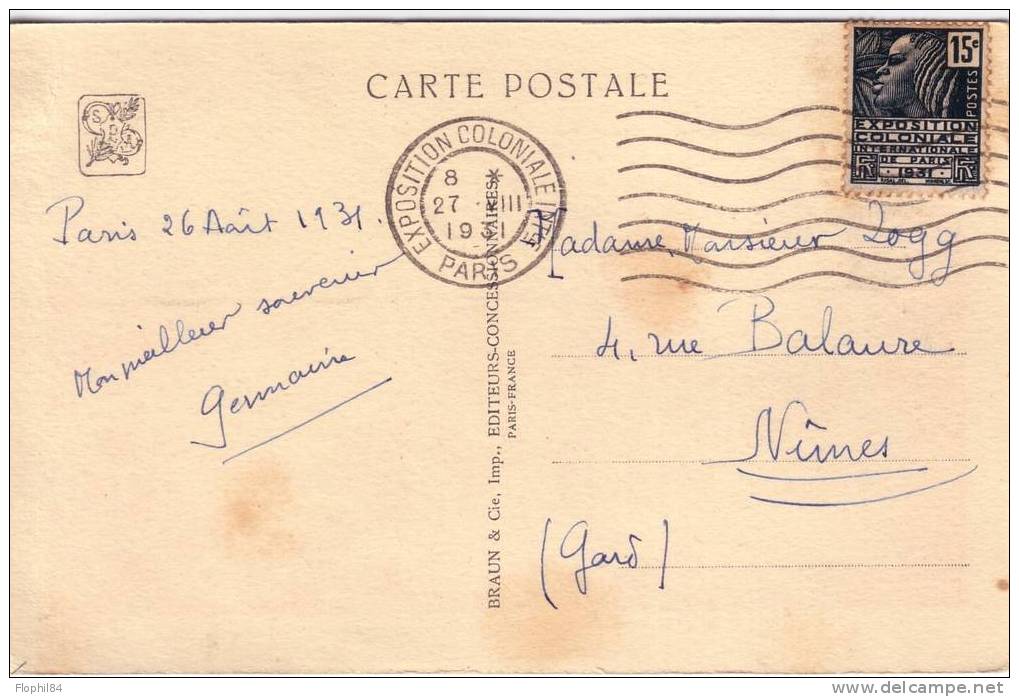 CARTE POSTALE
15c
POSTES
EXPOSITION
COLONIALE
INTERNATIONALE
DE PARIS
1931
EXPOSITION COLONIALE INT
PARIS
8 *
27 VIII
1931
Paris 26 Août 1931.
Mon meilleur souvenir
Germaine
BRAUN & Cie, Imp., EDITEURS-CONCESSIONNAIRES
PARIS-FRANCE
Madame, Monsieur Zogg
4, rue Balaure
Nîmes
(Gard)
Flophil84
www.delcampe.net